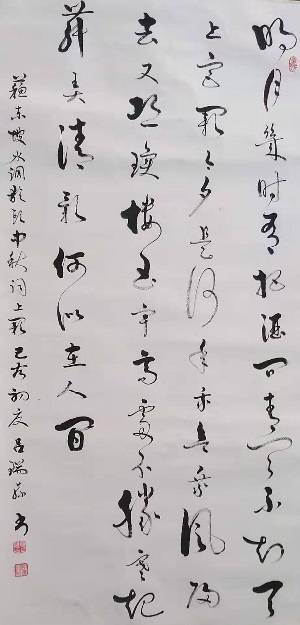 明月幾时有把酒问青天不知天
上宫阙今夕是何年我欲乘风归
去又恐琼楼玉宇高处不胜寒起
舞弄清影何似在人间
蘇东坡水调歌头中秋词上阕己亥初夏吕瑞书